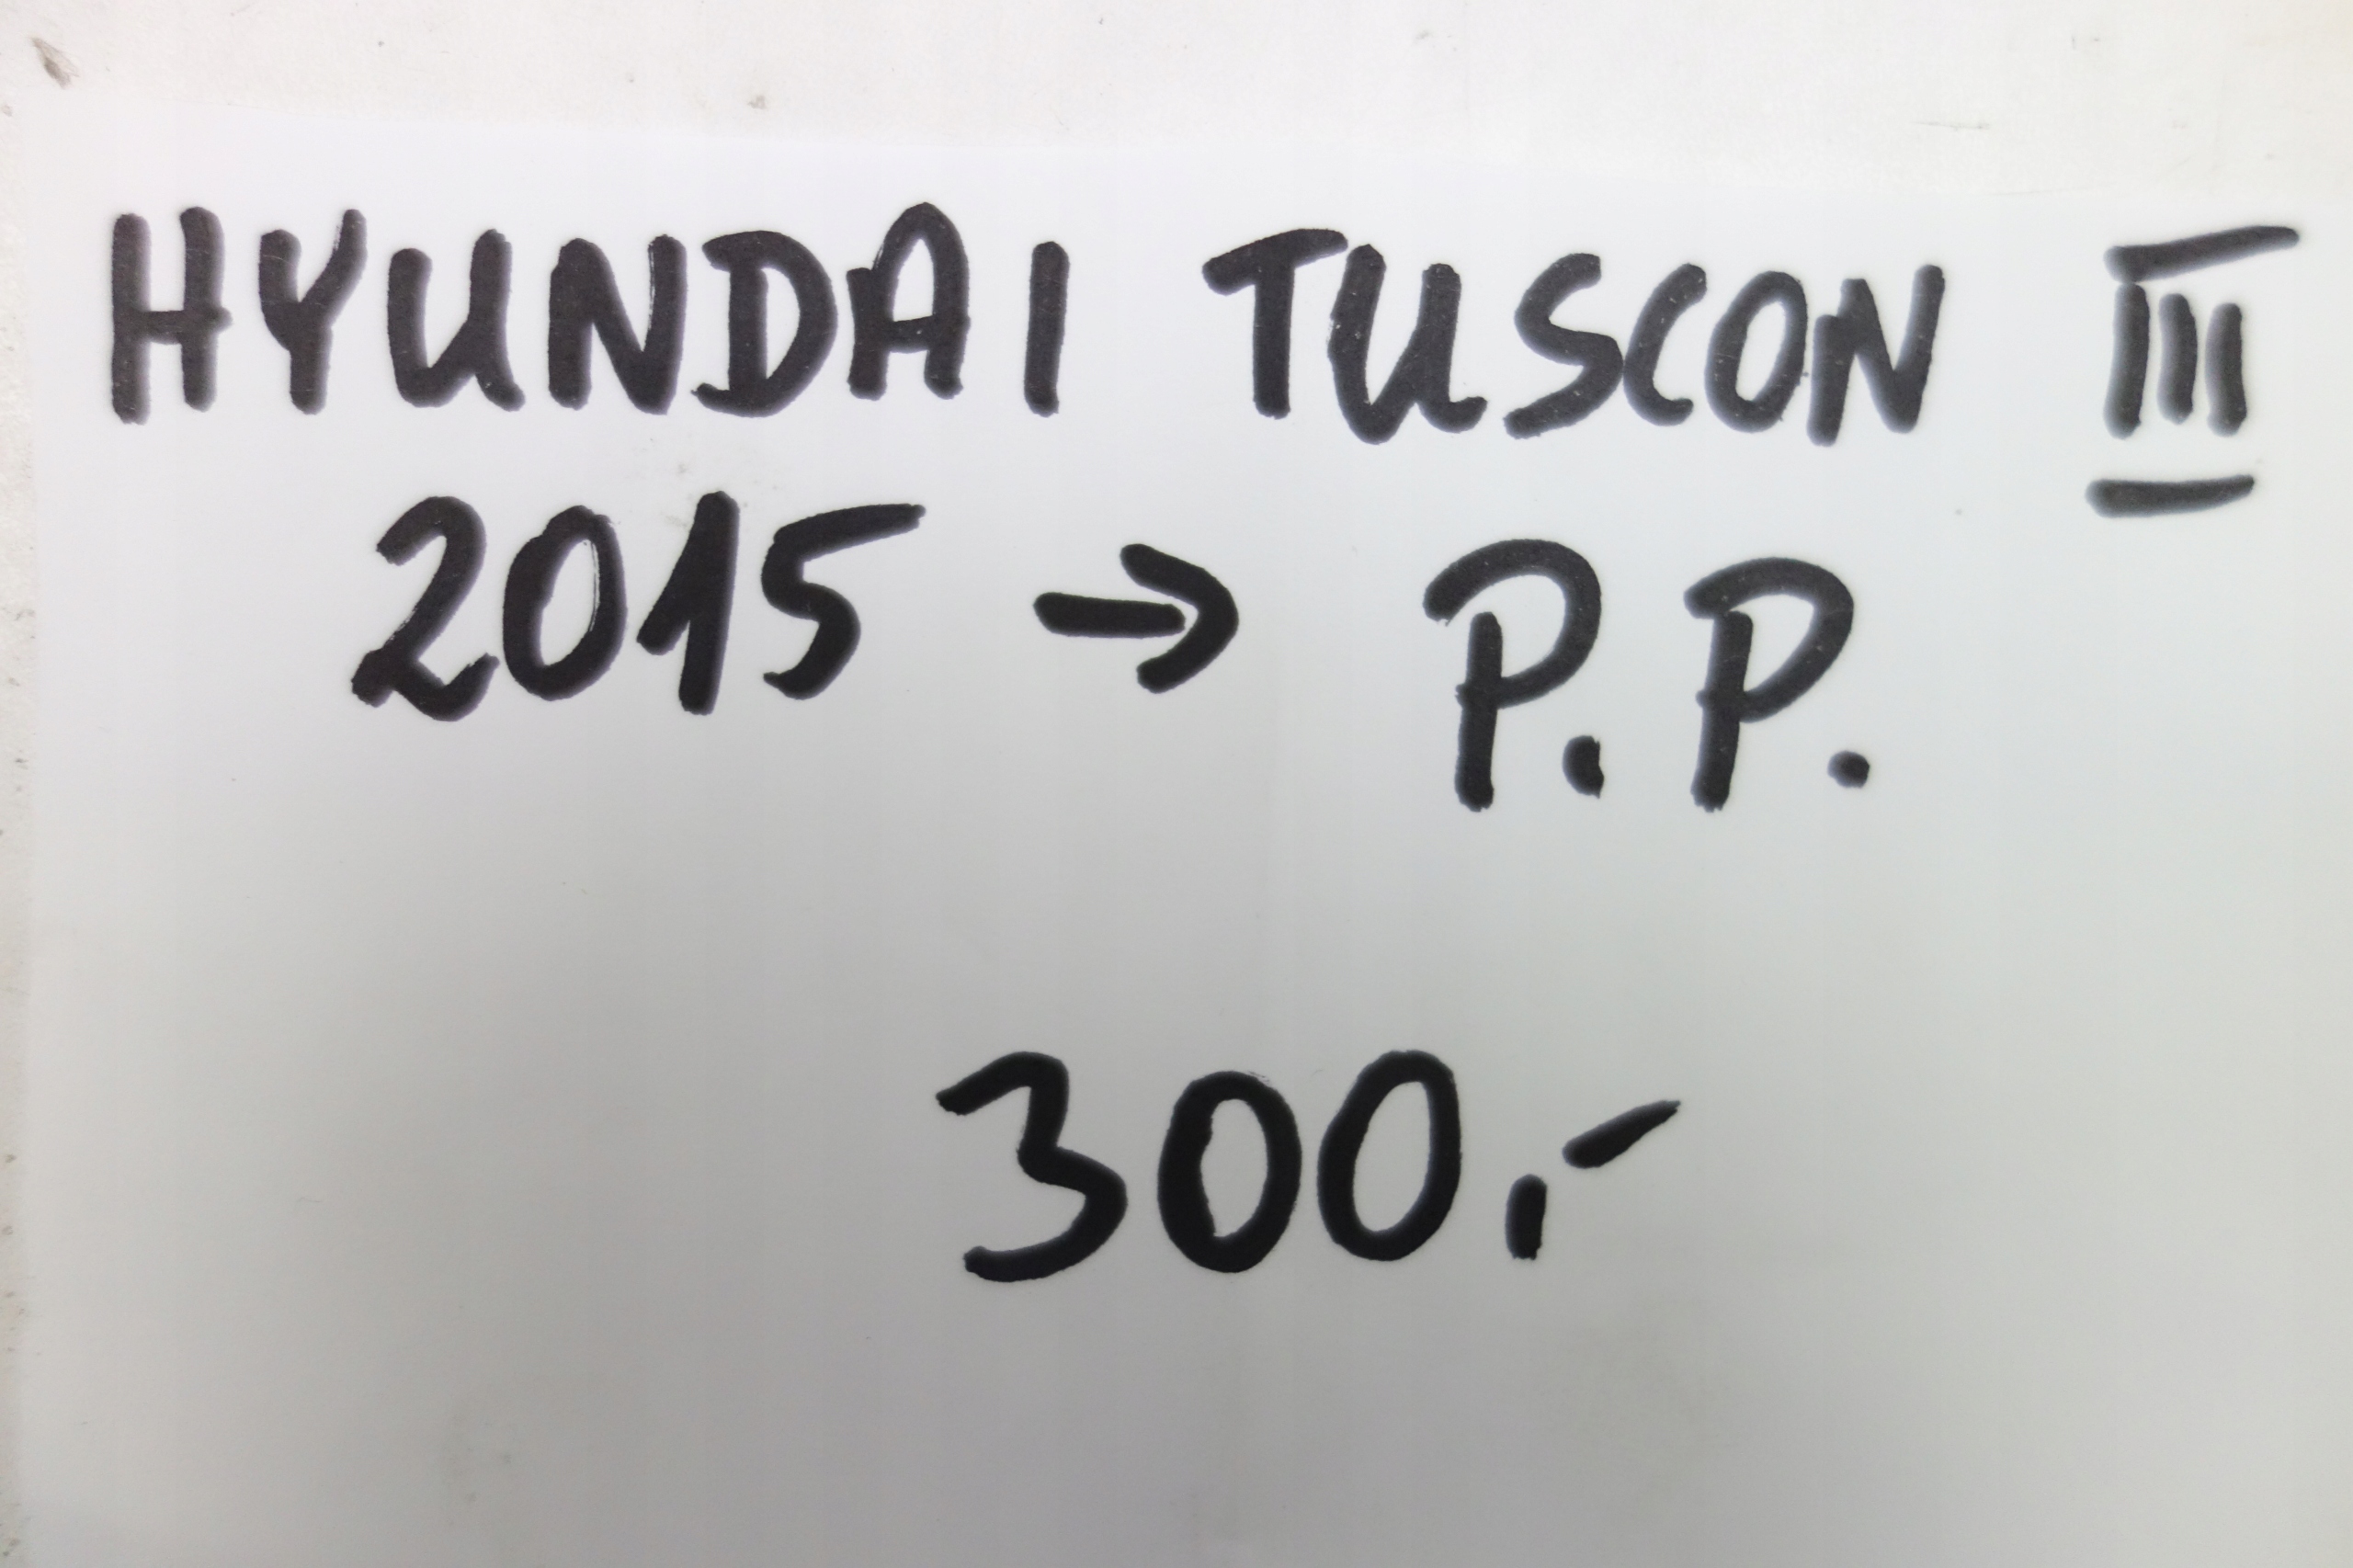 HYUNDAI TUSCON III
2015 → P.P.
300.-